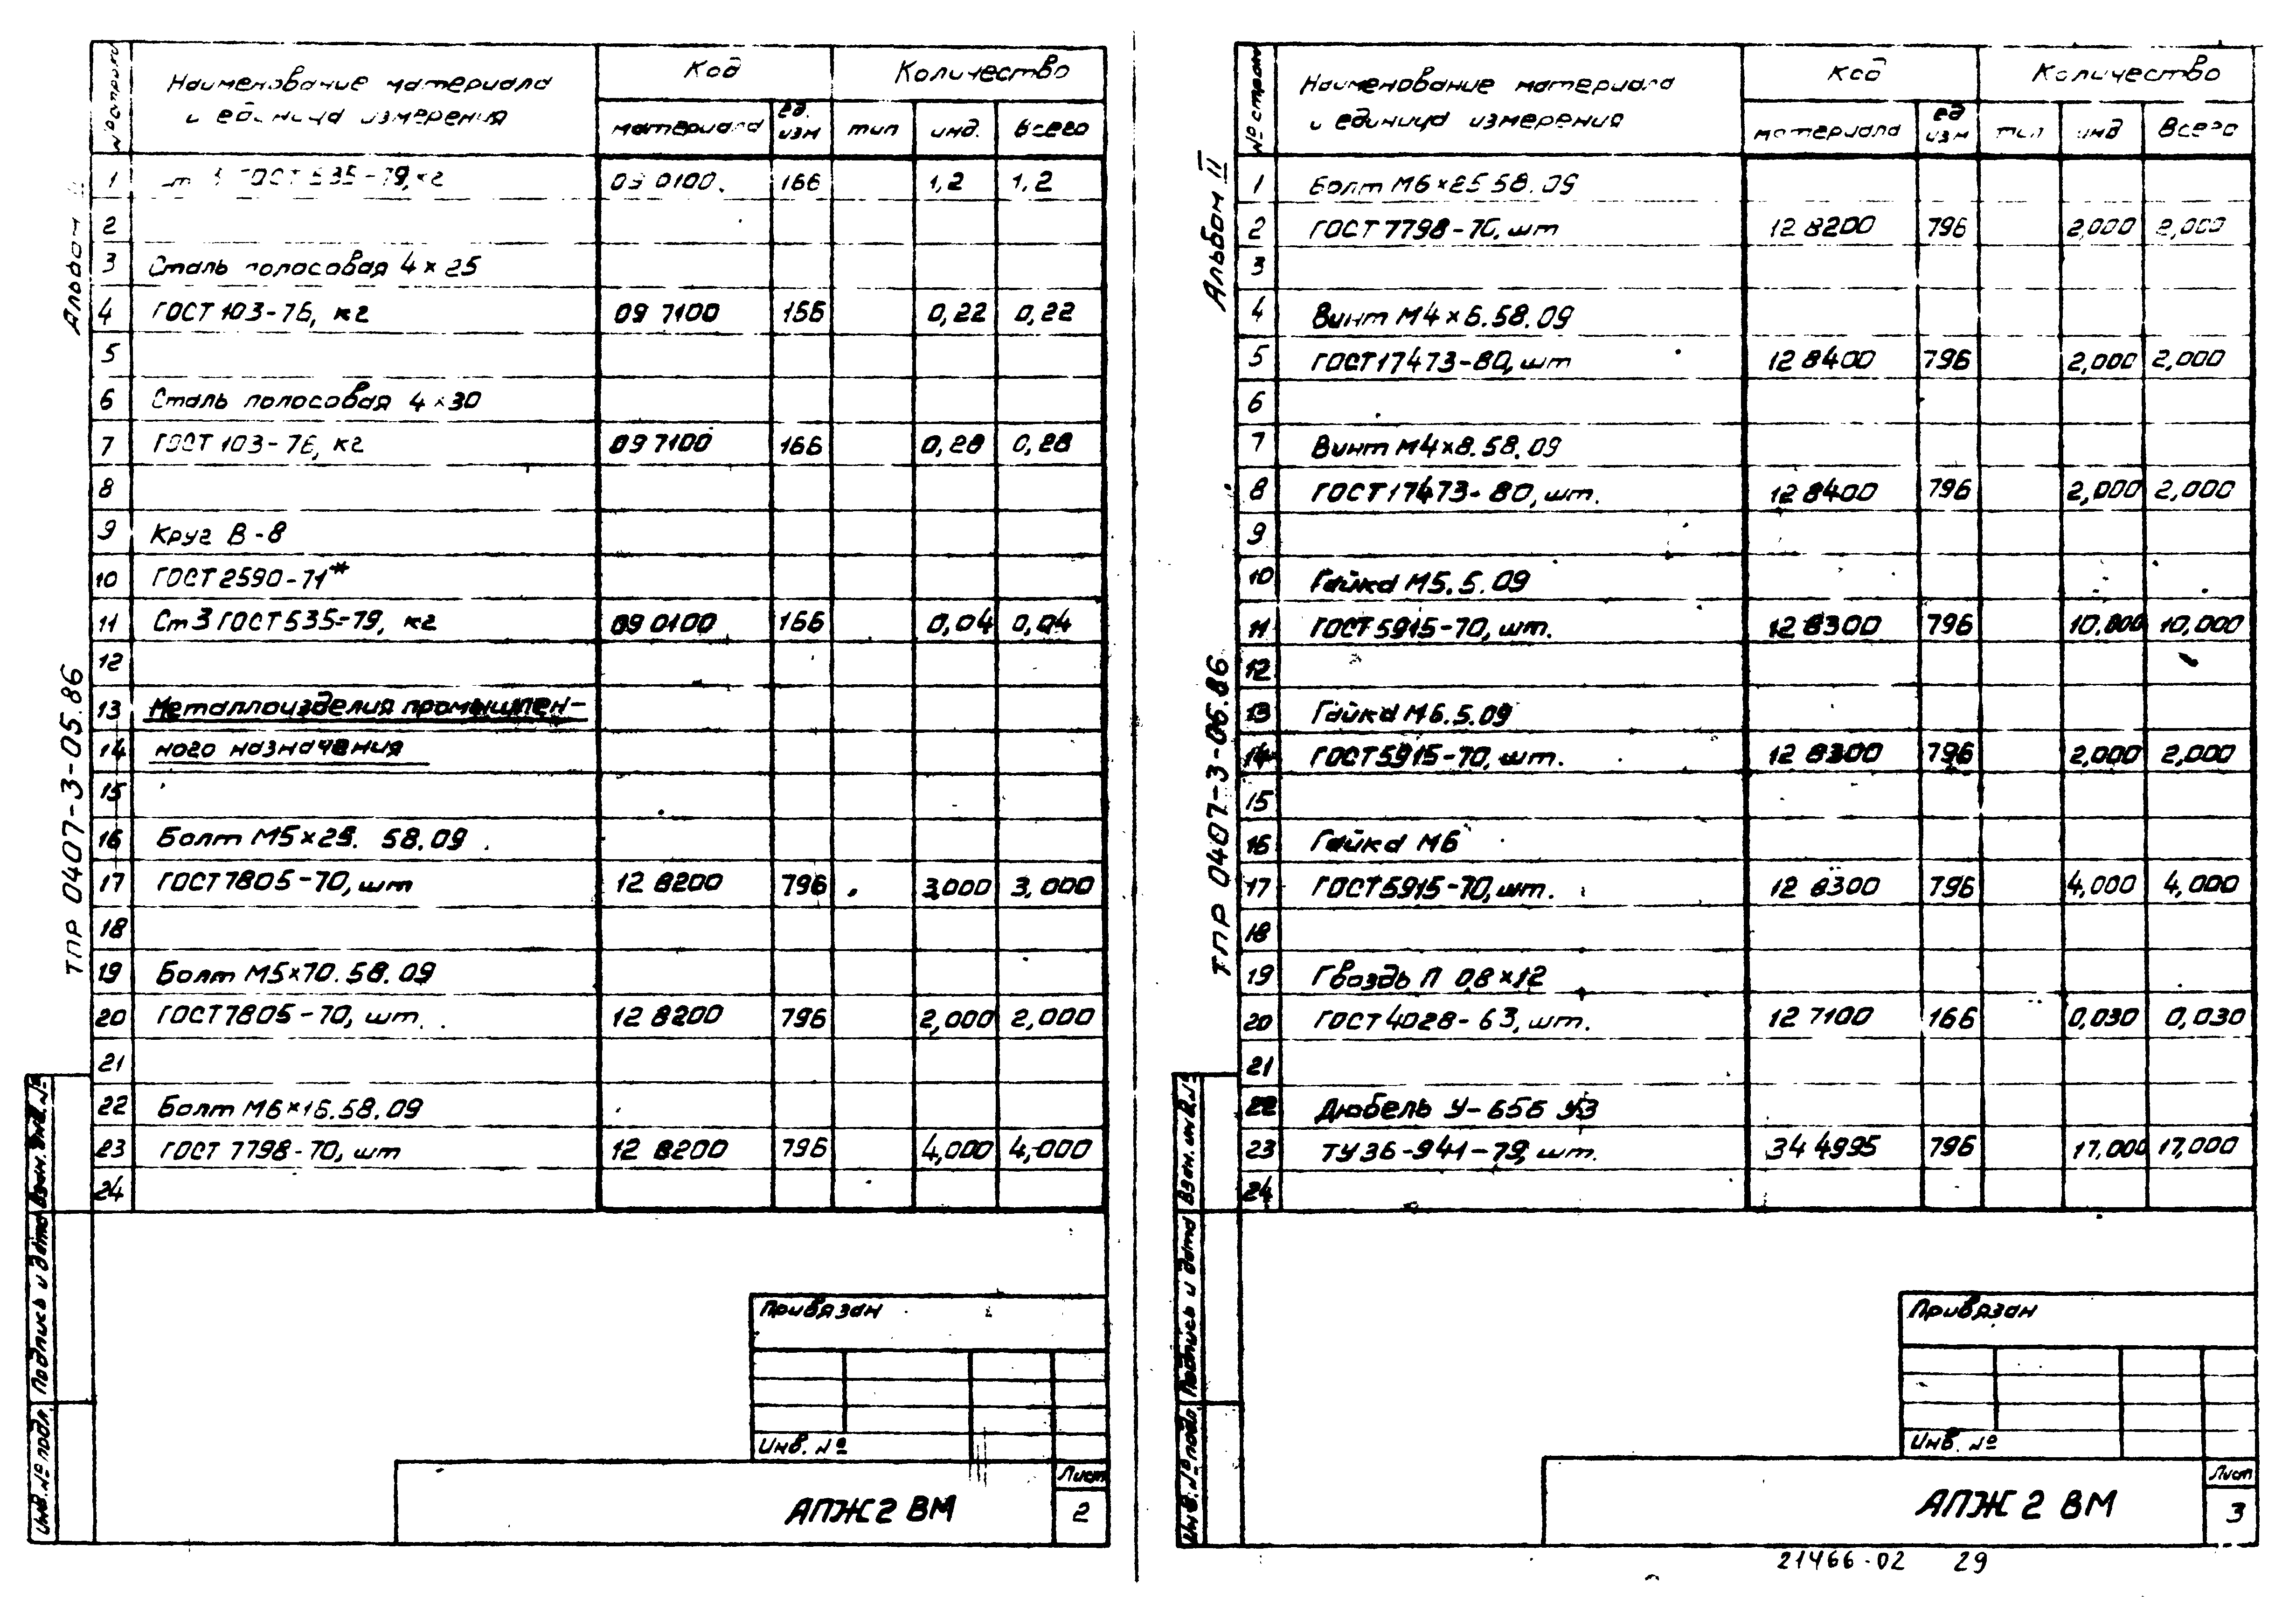 Альбом II
ТПР 0407-3-05.86
№ строки | Наименование материала и единица измерения | Код | Количество
материала | ед. изм | тип | инд. | всего
1 Ст 3 ГОСТ 535-79, кг 09 0100. 166 1,2 1,2
2
3 Сталь полосовая 4×25
4 ГОСТ 103-76, кг 09 7100 166 0,22 0,22
5
6 Сталь полосовая 4×30
7 ГОСТ 103-76, кг 09 7100 166 0,28 0,28
8
9 Круг В-8
10 ГОСТ 2590-71*
11 Ст 3 ГОСТ 535-79, кг 09 0100 166 0,04 0,04
12
13 Металлоизделия промышлен-
14 ного назначения
15
16 Болт М5×25. 58.09
17 ГОСТ 7805-70, шт 12 8200 796 3,000 3,000
18
19 Болт М5×70.58.09
20 ГОСТ 7805-70, шт. 12 8200 796 2,000 2,000
21
22 Болт М6×16.58.09
23 ГОСТ 7798-70, шт 12 8200 796 4,000 4,000
24
Взам. инв. №
Подпись и дата
Инв. № подл.
Привязан
Инв. №
АПЖ2 ВМ
Лист
2
Альбом II
ТПР 0407-3-06.86
№ строки | Наименование материала и единица измерения | Код | Количество
материала | ед изм | тип | инд | Всего
1 Болт М6×25 58.09
2 ГОСТ 7798-70, шт 12 8200 796 2,000 2,000
3
4 Винт М4×6.58.09
5 ГОСТ 17473-80, шт 12 8400 796 2,000 2,000
6
7 Винт М4×8.58.09
8 ГОСТ 17473-80, шт. 12 8400 796 2,000 2,000
9
10 Гайка М5.5.09
11 ГОСТ 5915-70, шт. 12 8300 796 10,000 10,000
12
13 Гайка М6.5.09
14 ГОСТ 5915-70, шт. 12 8300 796 2,000 2,000
15
16 Гайка М6
17 ГОСТ 5915-70, шт. 12 8300 796 4,000 4,000
18
19 Гвоздь П 08×12
20 ГОСТ 4028-63, шт. 12 7100 166 0,030 0,030
21
22 Дюбель У-656 У3
23 ТУ36-941-79, шт. 34 4995 796 17,000 17,000
24
Взам. инв. №
Подпись и дата
Инв. № подл.
Привязан
Инв. №
АПЖ 2 ВМ
Лист
3
21466-02 29